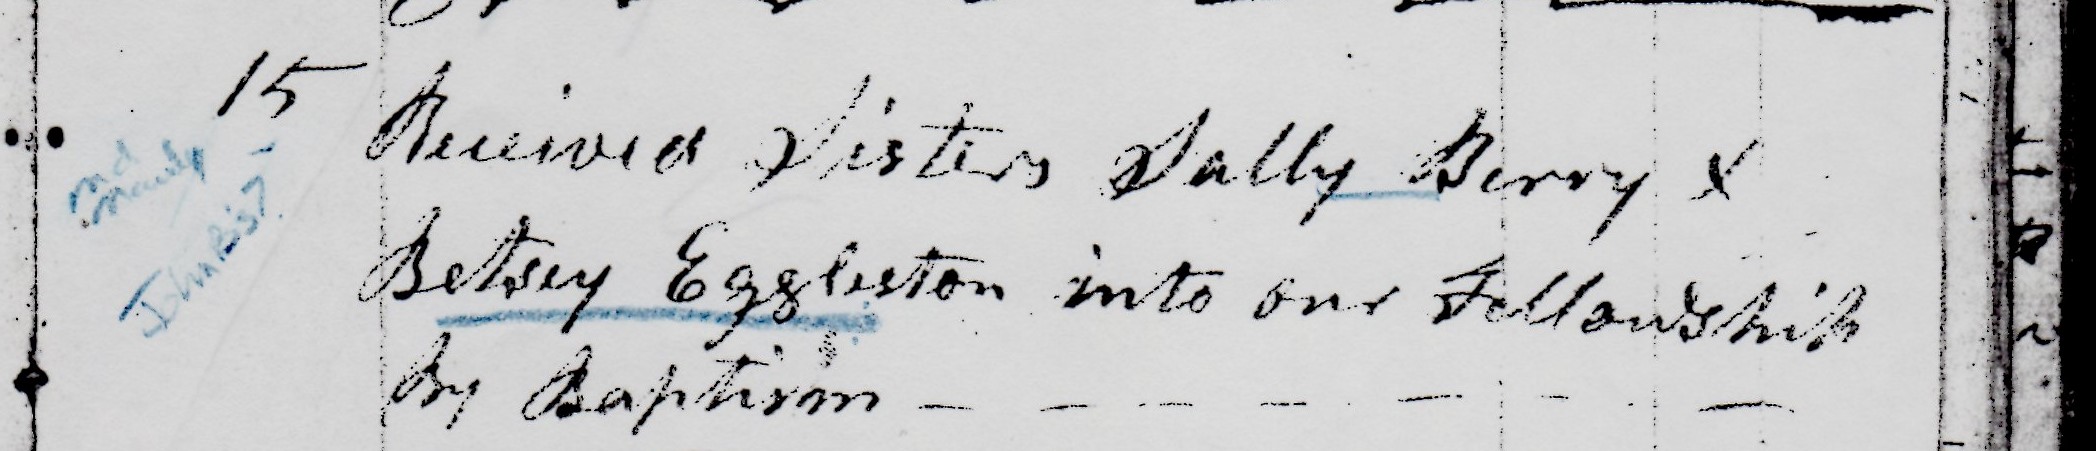 15 Received Sisters Sally Berry &
Betsey Eggleston into our Fellowship
by Baptism